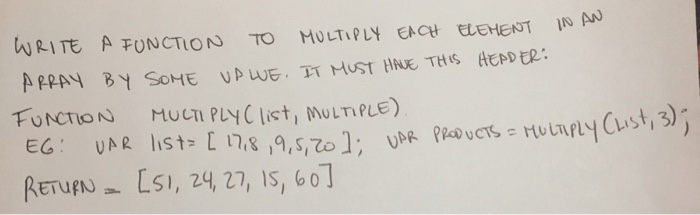 WRITE A FUNCTION TO MULTIPLY EACH ELEMENT IN AN
ARRAY BY SOME VALUE. IT MUST HAVE THIS HEADER:
FUNCTION MULTIPLY(list, MULTIPLE)
EG: VAR list= [17,8,9,5,20]; VAR PRODUCTS = MULTIPLY(List,3);
RETURN = [51, 24, 27, 15, 60]